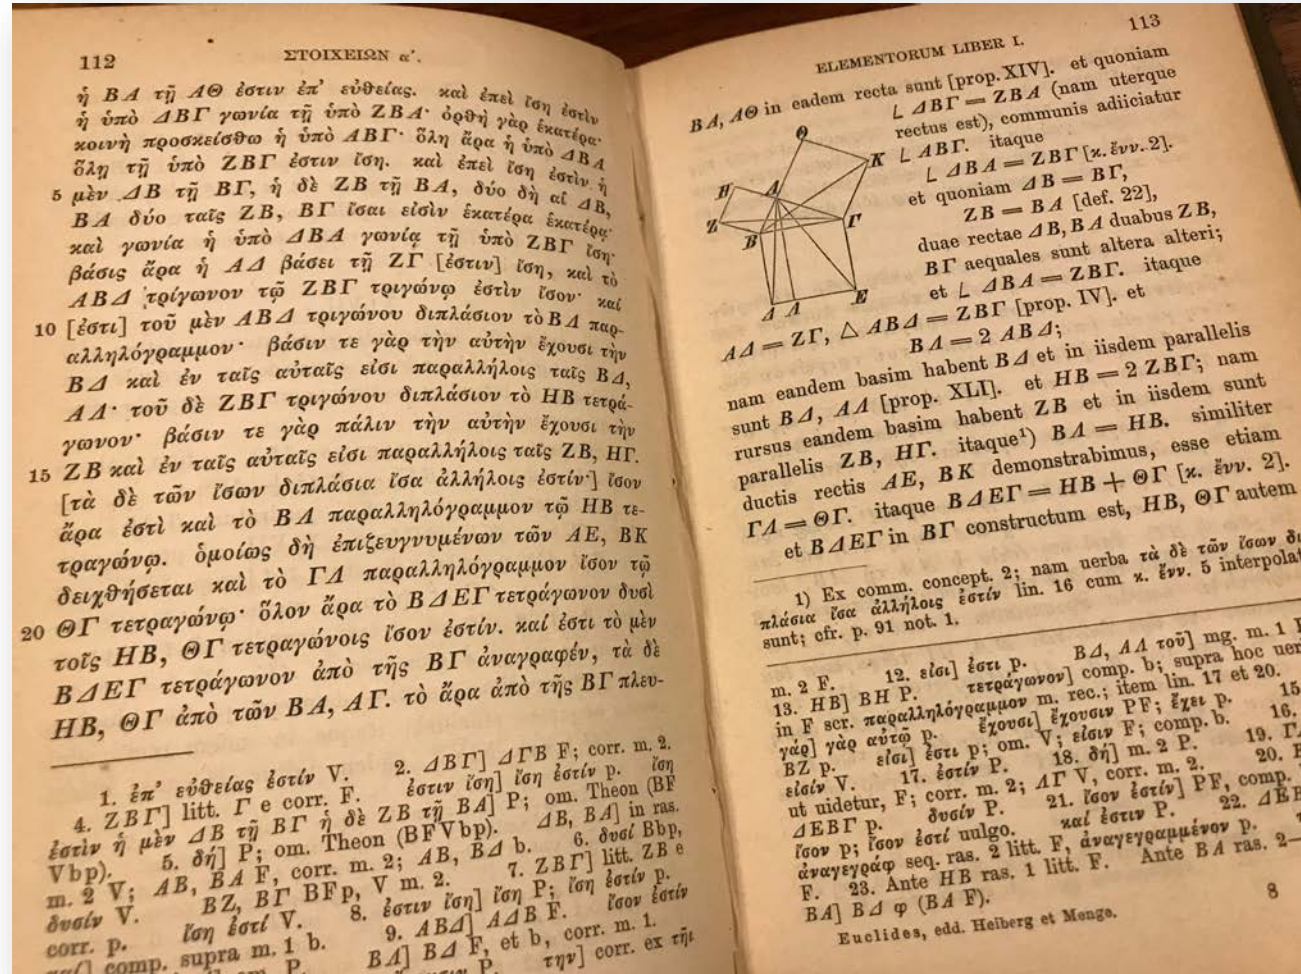 112
ΣΤΟΙΧΕΙΩΝ α'.
ἡ ΒΑ τῇ ΑΘ ἐστιν ἐπ' εὐθείας. καὶ ἐπεὶ ἴση ἐστὶν
ἡ ὑπὸ ΔΒΓ γωνία τῇ ὑπὸ ΖΒΑ· ὀρθὴ γὰρ ἑκατέρα·
κοινὴ προσκείσθω ἡ ὑπὸ ΑΒΓ· ὅλη ἄρα ἡ ὑπὸ ΔΒΑ
ὅλῃ τῇ ὑπὸ ΖΒΓ ἐστιν ἴση. καὶ ἐπεὶ ἴση ἐστὶν ἡ
5 μὲν ΔΒ τῇ ΒΓ, ἡ δὲ ΖΒ τῇ ΒΑ, δύο δὴ αἱ ΔΒ,
ΒΑ δύο ταῖς ΖΒ, ΒΓ ἴσαι εἰσὶν ἑκατέρα ἑκατέρᾳ·
καὶ γωνία ἡ ὑπὸ ΔΒΑ γωνίᾳ τῇ ὑπὸ ΖΒΓ ἴση·
βάσις ἄρα ἡ ΑΔ βάσει τῇ ΖΓ [ἐστιν] ἴση, καὶ τὸ
ΑΒΔ τρίγωνον τῷ ΖΒΓ τριγώνῳ ἐστὶν ἴσον· καί
10 [ἐστι] τοῦ μὲν ΑΒΔ τριγώνου διπλάσιον τὸ ΒΛ παρ-
αλληλόγραμμον· βάσιν τε γὰρ τὴν αὐτὴν ἔχουσι τὴν
ΒΔ καὶ ἐν ταῖς αὐταῖς εἰσι παραλλήλοις ταῖς ΒΔ,
ΑΛ· τοῦ δὲ ΖΒΓ τριγώνου διπλάσιον τὸ ΗΒ τετρά-
γωνον· βάσιν τε γὰρ πάλιν τὴν αὐτὴν ἔχουσι τὴν
15 ΖΒ καὶ ἐν ταῖς αὐταῖς εἰσι παραλλήλοις ταῖς ΖΒ, ΗΓ.
[τὰ δὲ τῶν ἴσων διπλάσια ἴσα ἀλλήλοις ἐστίν·] ἴσον
ἄρα ἐστὶ καὶ τὸ ΒΛ παραλληλόγραμμον τῷ ΗΒ τε-
τραγώνῳ. ὁμοίως δὴ ἐπιζευγνυμένων τῶν ΑΕ, ΒΚ
δειχθήσεται καὶ τὸ ΓΛ παραλληλόγραμμον ἴσον τῷ
20 ΘΓ τετραγώνῳ· ὅλον ἄρα τὸ ΒΔΕΓ τετράγωνον δυσὶ
τοῖς ΗΒ, ΘΓ τετραγώνοις ἴσον ἐστίν. καί ἐστι τὸ μὲν
ΒΔΕΓ τετράγωνον ἀπὸ τῆς ΒΓ ἀναγραφέν, τὰ δὲ
ΗΒ, ΘΓ ἀπὸ τῶν ΒΑ, ΑΓ. τὸ ἄρα ἀπὸ τῆς ΒΓ πλευ-
1. ἐπ' εὐθείας ἐστίν V. 2. ΔΒΓ] ΔΓΒ F; corr. m. 2.
4. ΖΒΓ] litt. Γ e corr. F. ἐστιν ἴση] ἴση ἐστίν p. ἴση
ἐστὶν ἡ μὲν ΔΒ τῇ ΒΓ ἡ δὲ ΖΒ τῇ ΒΑ] P; om. Theon (BF
Vbp). 5. δή] P; om. Theon (BFVbp). ΔΒ, ΒΑ] in ras.
m. 2 V; ΑΒ, ΒΔ F, corr. m. 2; ΑΒ, ΒΔ b. 6. δυσί Bbp,
δυσίν V. ΒΖ, ΒΓ BFp, V m. 2. 7. ΖΒΓ] litt. ΖΒ e
corr. p. ἴση ἐστί V. 8. ἐστιν ἴση] ἴση P; ἴση ἐστίν p.
comp. supra m. 1 b. 9. ΑΒΔ] ΑΔΒ F. ἴσον ἐστίν
P. ΒΛ] ΒΔ F, et b, corr. m. 1.
P. την] corr. ex τῆι
113
ELEMENTORUM LIBER I.
ΒΑ, ΑΘ in eadem recta sunt [prop. XIV]. et quoniam
∠ ΔΒΓ = ΖΒΑ (nam uterque
rectus est), communis adiiciatur
∠ ΑΒΓ. itaque
∠ ΔΒΑ = ΖΒΓ [κ. ἔνν. 2].
et quoniam ΔΒ = ΒΓ,
ΖΒ = ΒΑ [def. 22],
duae rectae ΔΒ, ΒΑ duabus ΖΒ,
ΒΓ aequales sunt altera alteri;
et ∠ ΔΒΑ = ΖΒΓ. itaque
Θ
Κ
Η
Α
Ζ
Β
Γ
Δ Λ
Ε
ΑΔ = ΖΓ, △ ΑΒΔ = ΖΒΓ [prop. IV]. et
ΒΛ = 2 ΑΒΔ;
nam eandem basim habent ΒΔ et in iisdem parallelis
sunt ΒΔ, ΑΛ [prop. XLI]. et ΗΒ = 2 ΖΒΓ; nam
rursus eandem basim habent ΖΒ et in iisdem sunt
parallelis ΖΒ, ΗΓ. itaque¹) ΒΛ = ΗΒ. similiter
ductis rectis ΑΕ, ΒΚ demonstrabimus, esse etiam
ΓΛ = ΘΓ. itaque ΒΔΕΓ = ΗΒ + ΘΓ [κ. ἔνν. 2].
et ΒΔΕΓ in ΒΓ constructum est, ΗΒ, ΘΓ autem
1) Ex comm. concept. 2; nam uerba τὰ δὲ τῶν ἴσων δι
πλάσια ἴσα ἀλλήλοις ἐστίν lin. 16 cum κ. ἔνν. 5 interpolat
sunt; cfr. p. 91 not. 1.
m. 2 F. 12. εἰσι] ἐστι p. ΒΔ, ΑΛ τοῦ] mg. m. 1 F
13. ΗΒ] ΒΗ P. τετράγωνον] comp. b; supra hoc uer
in F scr. παραλληλόγραμμον m. rec.; item lin. 17 et 20.
γάρ] γὰρ αὐτῷ p. ἔχουσι] ἔχουσιν PF; ἔχει p. 15
ΒΖ p. εἰσι] ἐστι p; om. V; εἰσιν F; comp. b. 16.
εἰσίν V. 17. ἐστίν P. 18. δή] m. 2 P. 19. ΓΛ
ut uidetur, F; corr. m. 2; ΛΓ V, corr. m. 2. 20.
ΔΕΒΓ p. δυσίν P. 21. ἴσον ἐστίν] PF, comp.
ἴσον p; ἴσον ἐστί uulgo. καί ἐστιν P. 22. ΔΕΒ
ἀναγεγράφ seq. ras. 2 litt. F, ἀναγεγραμμένον p.
F. 23. Ante ΗΒ ras. 1 litt. F. Ante ΒΑ ras. 2—
ΒΑ] ΒΔ φ (ΒΑ F).
Euclides, edd. Heiberg et Menge.
8